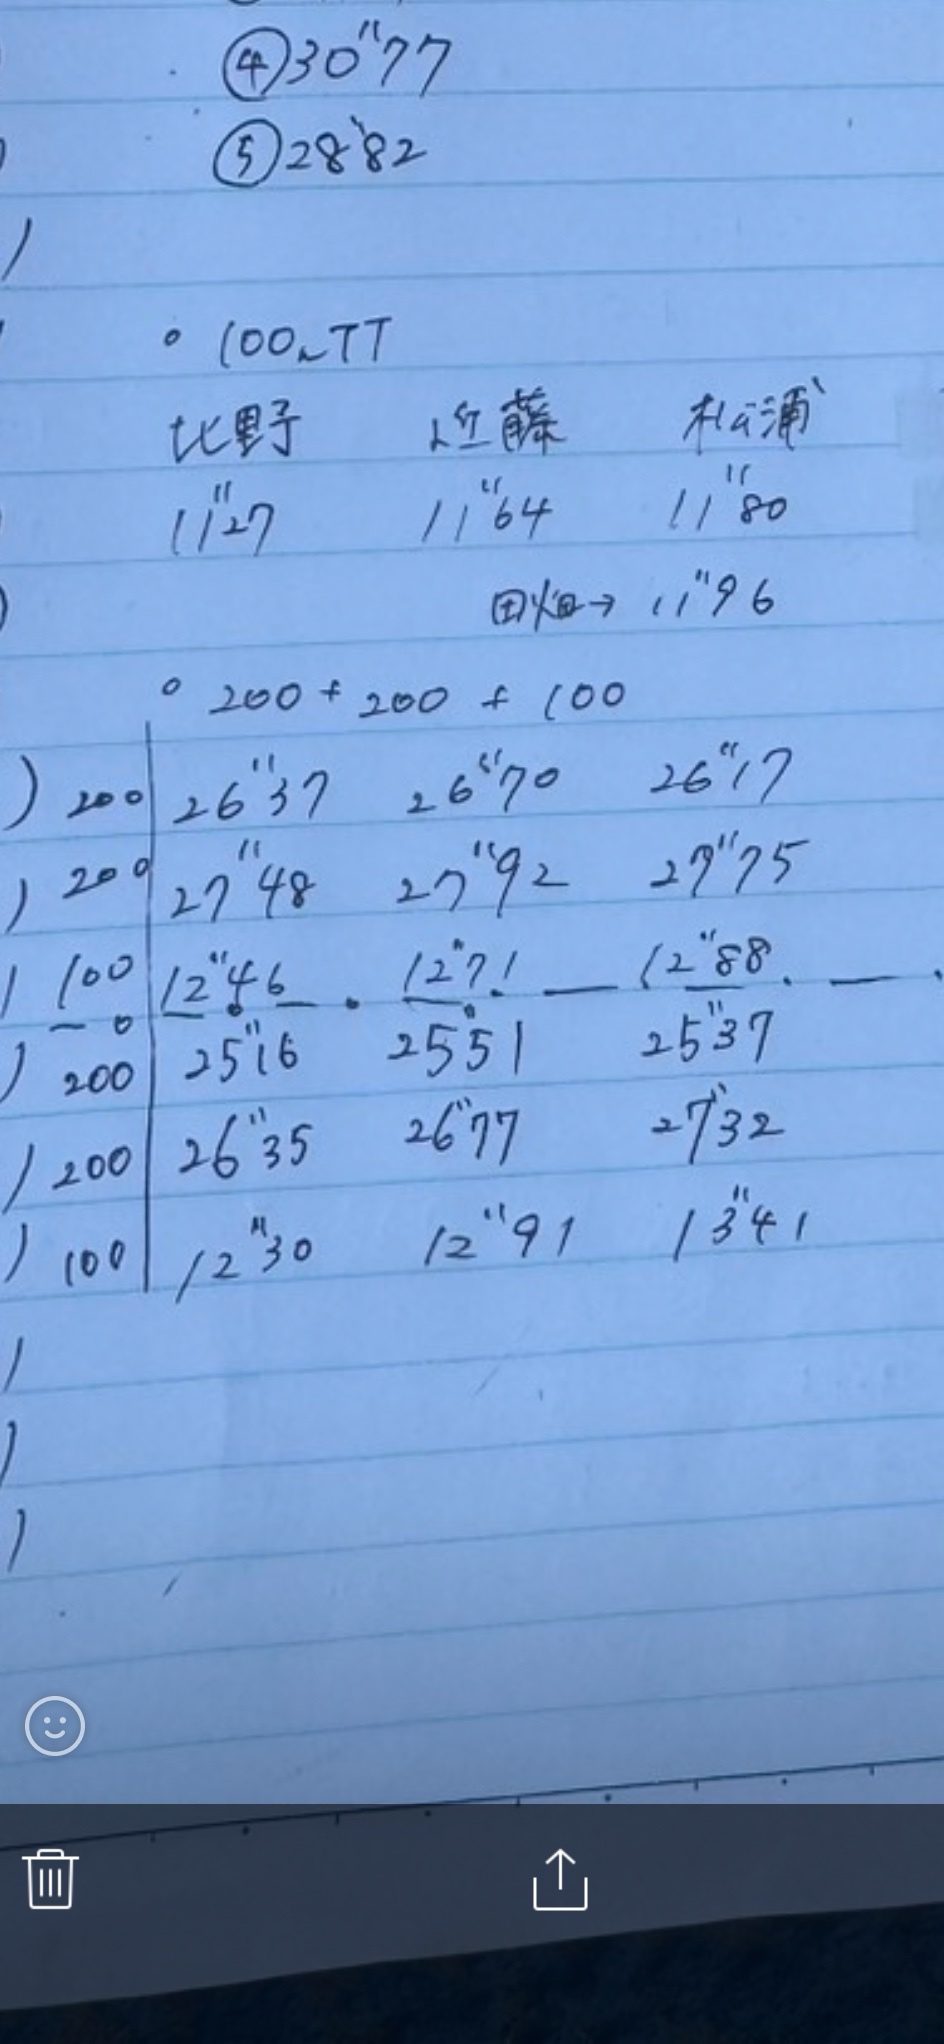 ④30"77
⑤28"82
° 100m TT
比野 近藤 松浦
11"27 11"64 11"80
田畑→ 11"96
° 200 + 200 + 100
200 26"37 26"70 26"17
200 27"48 27"92 27"75
100 12"46 12"71 12"88
200 25"16 25"51 25"37
200 26"35 26"77 27"32
100 12"30 12"91 13"41